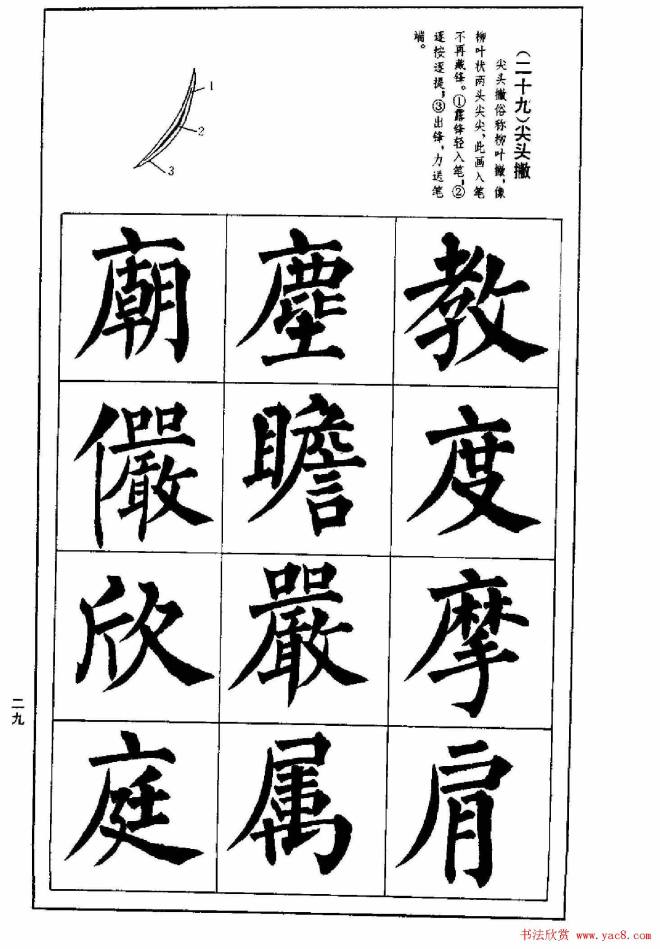 (二十九)尖头撇
尖头撇俗称柳叶撇,像
柳叶状两头尖尖,此画入笔
不再藏锋。①露锋轻入笔;②
逐按逐提;③出锋,力送笔
端。
1
2
3
教
度
摩
肩
塵
瞻
嚴
属
廟
儼
欣
庭
二九
书法欣赏 www.yac8.com